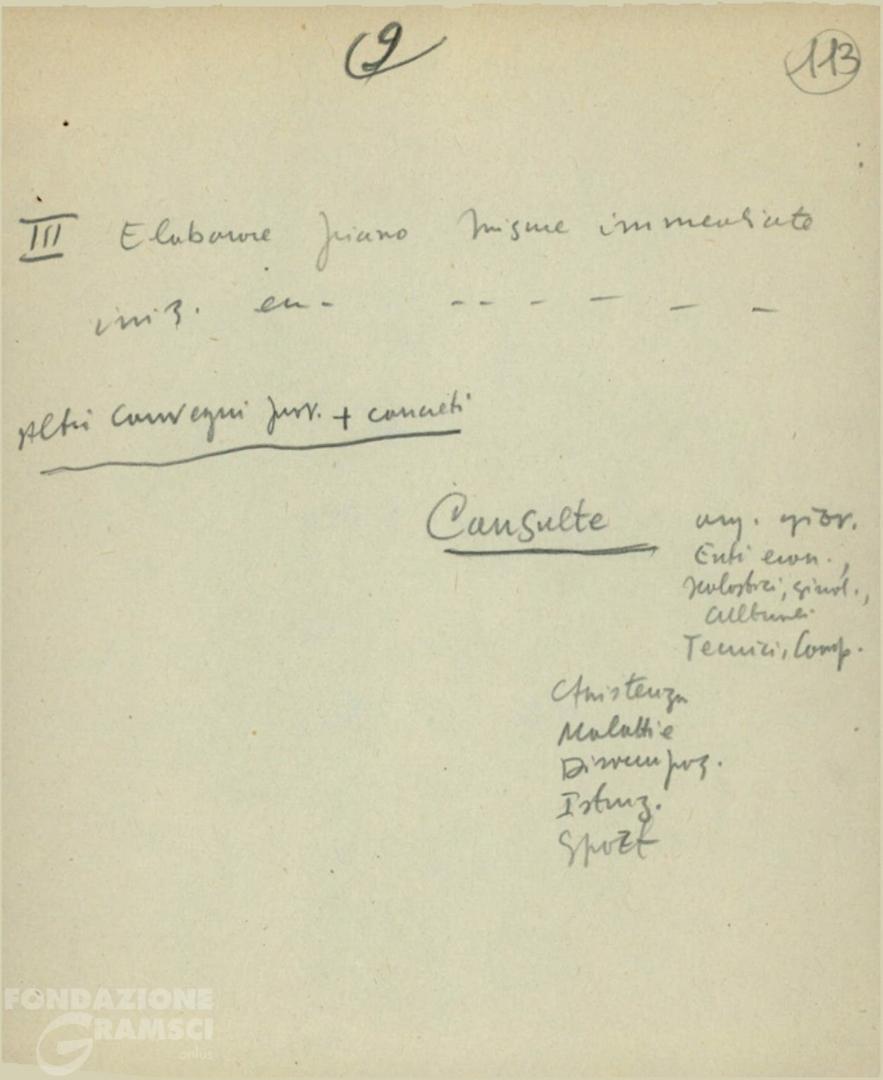 9
113
III Elaborare piano misure immediate
iniz. en- -- - - - -
Altri Convegni prov. + concreti
Consulte
org. giov.
Enti econ.,
scolastici, sind.,
culturali
Tecnici, Comp.
Assistenza
Malattie
Disoccupaz.
Istruz.
Sport
FONDAZIONE
GRAMSCI
onlus